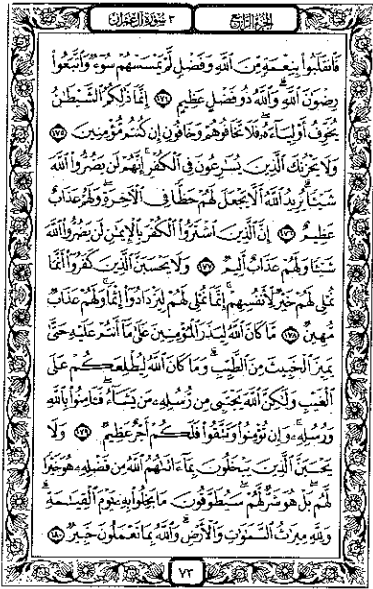 الجزء الرابع ٣ سورة آل عمران
فَٱنقَلَبُوا۟ بِنِعْمَةٍ مِّنَ ٱللَّهِ وَفَضْلٍ لَّمْ يَمْسَسْهُمْ سُوٓءٌ وَٱتَّبَعُوا۟
رِضْوَٰنَ ٱللَّهِ وَٱللَّهُ ذُو فَضْلٍ عَظِيمٍ ١٧٤ إِنَّمَا ذَٰلِكُمُ ٱلشَّيْطَٰنُ
يُخَوِّفُ أَوْلِيَآءَهُۥ فَلَا تَخَافُوهُمْ وَخَافُونِ إِن كُنتُم مُّؤْمِنِينَ ١٧٥
وَلَا يَحْزُنكَ ٱلَّذِينَ يُسَٰرِعُونَ فِى ٱلْكُفْرِ إِنَّهُمْ لَن يَضُرُّوا۟ ٱللَّهَ
شَيْـًٔا يُرِيدُ ٱللَّهُ أَلَّا يَجْعَلَ لَهُمْ حَظًّا فِى ٱلْءَاخِرَةِ وَلَهُمْ عَذَابٌ
عَظِيمٌ ١٧٦ إِنَّ ٱلَّذِينَ ٱشْتَرَوُا۟ ٱلْكُفْرَ بِٱلْإِيمَٰنِ لَن يَضُرُّوا۟ ٱللَّهَ
شَيْـًٔا وَلَهُمْ عَذَابٌ أَلِيمٌ ١٧٧ وَلَا يَحْسَبَنَّ ٱلَّذِينَ كَفَرُوٓا۟ أَنَّمَا
نُمْلِى لَهُمْ خَيْرٌ لِّأَنفُسِهِمْ إِنَّمَا نُمْلِى لَهُمْ لِيَزْدَادُوٓا۟ إِثْمًا وَلَهُمْ عَذَابٌ
مُّهِينٌ ١٧٨ مَّا كَانَ ٱللَّهُ لِيَذَرَ ٱلْمُؤْمِنِينَ عَلَىٰ مَآ أَنتُمْ عَلَيْهِ حَتَّىٰ
يَمِيزَ ٱلْخَبِيثَ مِنَ ٱلطَّيِّبِ وَمَا كَانَ ٱللَّهُ لِيُطْلِعَكُمْ عَلَى
ٱلْغَيْبِ وَلَٰكِنَّ ٱللَّهَ يَجْتَبِى مِن رُّسُلِهِۦ مَن يَشَآءُ فَـَٔامِنُوا۟ بِٱللَّهِ
وَرُسُلِهِۦ وَإِن تُؤْمِنُوا۟ وَتَتَّقُوا۟ فَلَكُمْ أَجْرٌ عَظِيمٌ ١٧٩ وَلَا
يَحْسَبَنَّ ٱلَّذِينَ يَبْخَلُونَ بِمَآ ءَاتَىٰهُمُ ٱللَّهُ مِن فَضْلِهِۦ هُوَ خَيْرًا
لَّهُم بَلْ هُوَ شَرٌّ لَّهُمْ سَيُطَوَّقُونَ مَا بَخِلُوا۟ بِهِۦ يَوْمَ ٱلْقِيَٰمَةِ
وَلِلَّهِ مِيرَٰثُ ٱلسَّمَٰوَٰتِ وَٱلْأَرْضِ وَٱللَّهُ بِمَا تَعْمَلُونَ خَبِيرٌ ١٨٠
٧٣